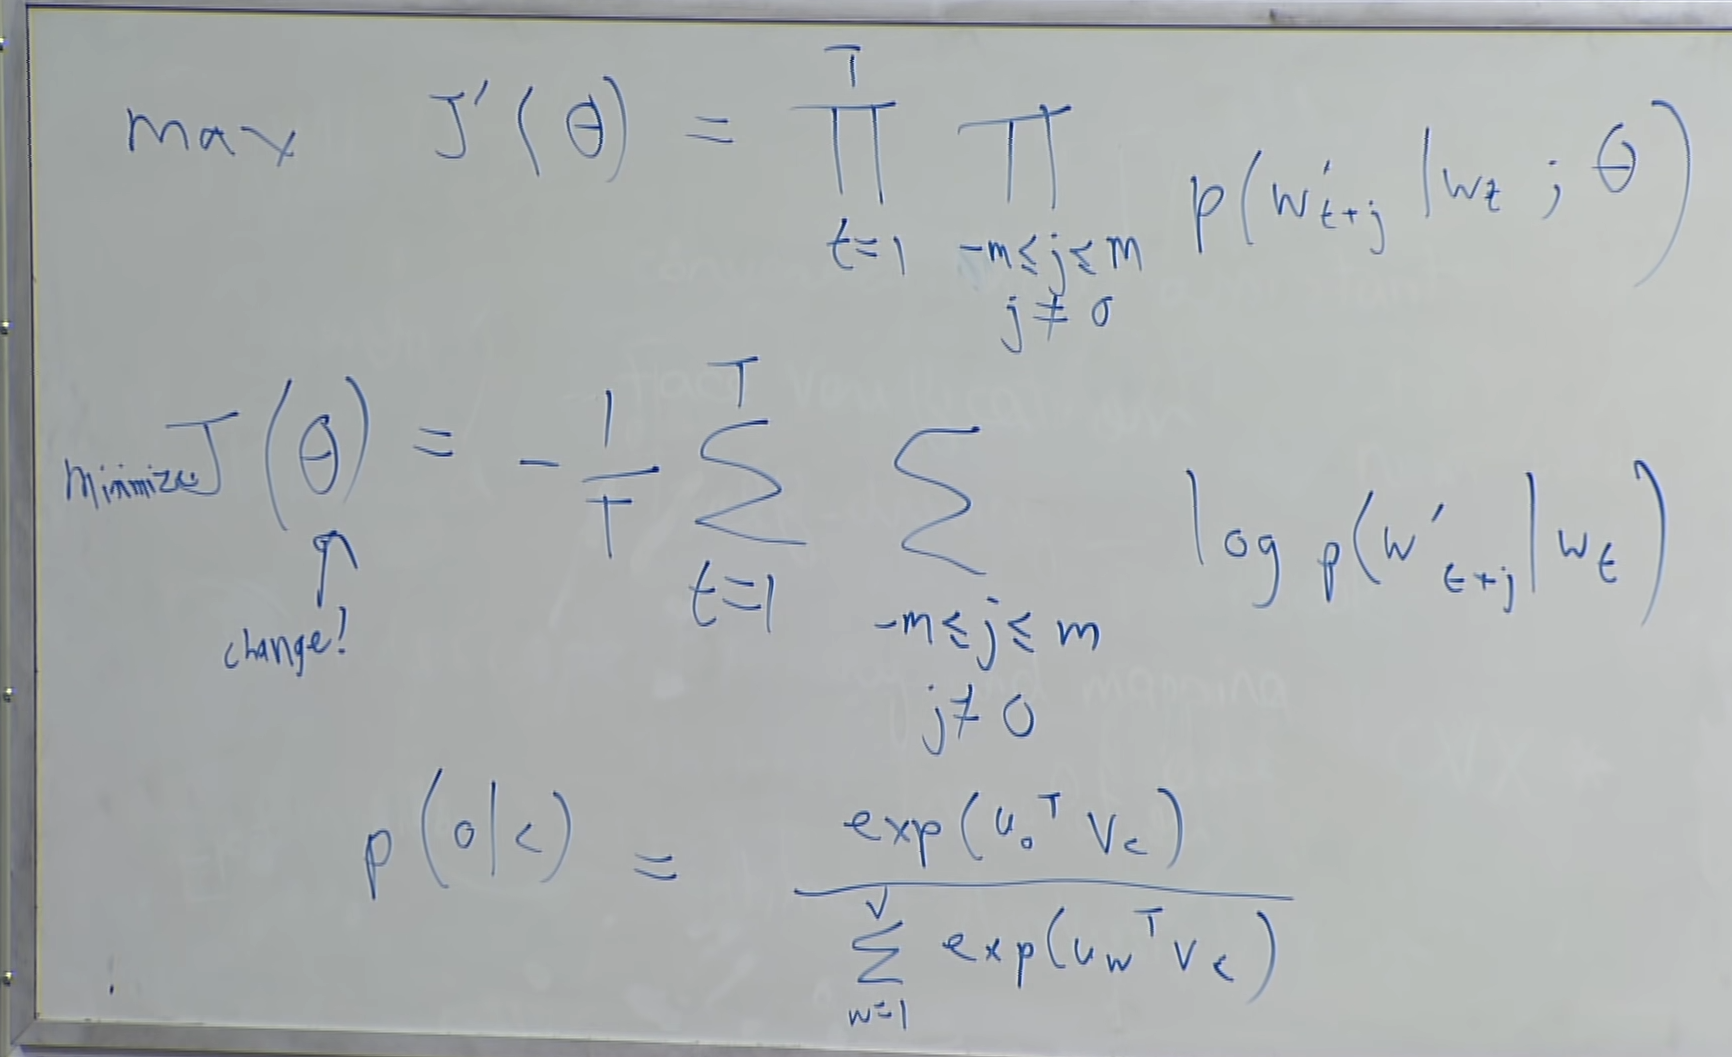 max J'(θ) = ∏_{t=1}^{T} ∏_{-m≤j≤m, j≠0} p(w'_{t+j} | w_t ; θ)
Minimize J(θ) = - 1/T ∑_{t=1}^{T} ∑_{-m≤j≤m, j≠0} log p(w'_{t+j} | w_t)
change!
p(o|c) = exp(u_o^T v_c) / ∑_{w=1}^{V} exp(u_w^T v_c)